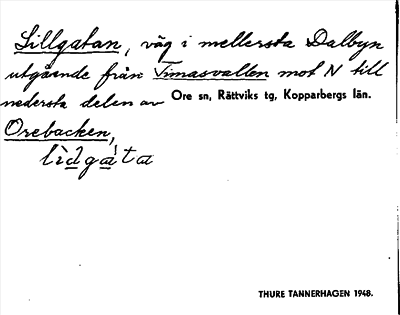 Lillgatan, väg i mellersta Dalbyn
utgående från Timasvallen mot N till
nedersta delen av Ore sn, Rättviks tg, Kopparbergs län.
Orebacken,
lìdgàta
THURE TANNERHAGEN 1948.